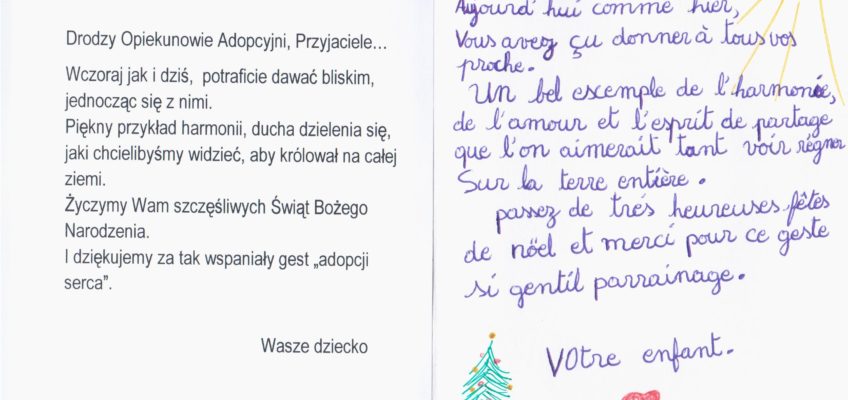 Drodzy Opiekunowie Adopcyjni, Przyjaciele…
Wczoraj jak i dziś, potraficie dawać bliskim,
jednocząc się z nimi.
Piękny przykład harmonii, ducha dzielenia się,
jaki chcielibyśmy widzieć, aby królował na całej
ziemi.
Życzymy Wam szczęśliwych Świąt Bożego
Narodzenia.
I dziękujemy za tak wspaniały gest „adopcji
serca”.
Wasze dziecko
Aujourd'hui comme hier,
Vous avez çu donner à tous vos
proche.
Un bel escemple de l'harmonie,
de l'amour et l'esprit de partage
que l'on aimerait tant voir régner
Sur la terre entière.
passez de trés heureuses fêtes
de nöel et merci pour ce geste
si gentil parrainage.
VOtre enfant.